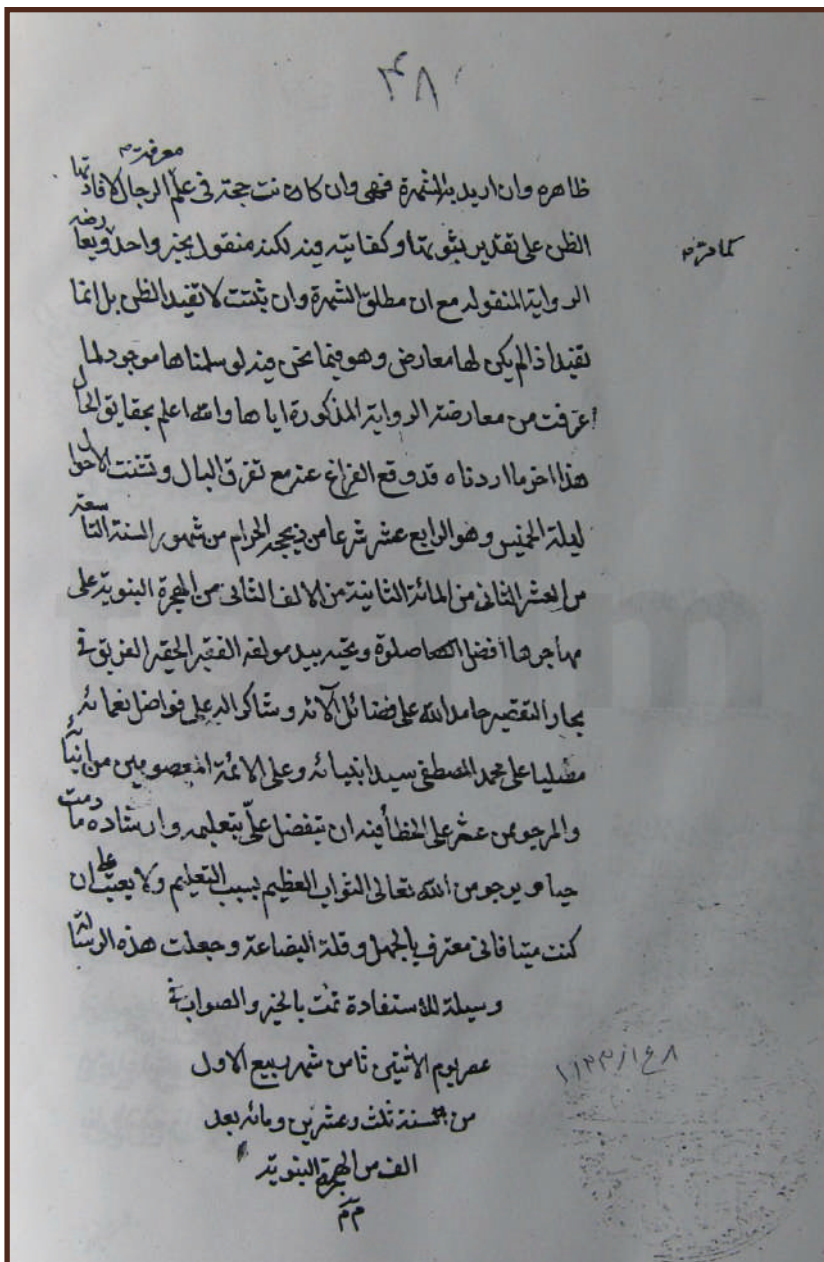 ٣٨
ظاهره وان اريد به الشهرة فهى وان كانت حجة فى علم الرجال لافادتها
معرفت
الظن على تقدير ثبوتها وكفايته فيه لكنه منقول بخبر واحد ويعارضه
كما مرت
الرواية المنقوله مع ان مطلق الشهرة وان ثبتت لا تفيد الظن بل انما
تفيد اذا لم يكن لها معارض وهو فيما نحن فيه لو سلمناها موجود لما
عرفت من معارضة الرواية المذكورة اياها والله اعلم بحقايق الحال
هذا اخر ما اردناه قد وقع الفراغ عنه مع تفرق البال وتشتت الاحوال
ليلة الخميس وهو الرابع عشر شرعا من ذيحجه الحرام من شهور السنة التاسعة
من العشر الثانى من المائة الثانية من الالف الثانى من الهجرة النبوية على
مهاجرها افضل صلوة وتحيه بيد مولفه الفقير الحقير الغريق فى
بحار التقصير حامدا لله على فضائل آلآئه وشاكرا له على فواضل نعمائه
مصليا على محمد المصطفى سيد انبيائه وعلى الائمة المعصومين من
والمرجو ممن عثر على الخطأ فيه ان يتفضل علىّ بتعليمه وارشاده ما دمت
حيا ويرجو من الله تعالى الثواب العظيم بسبب التعليم ولا يعيب على ان
كنت ميتا فانى معترف بالجهل وقلة البضاعة وجعلت هذه الرسالة
وسيلة للاستفادة تمت بالخير والصواب فى
عصر يوم الاثنين ثامن شهر ربيع الاول
٨ ع ١ ١١٢٣
من سنة ثلث وعشرين ومائه بعد
الف من الهجرة النبوية
م م